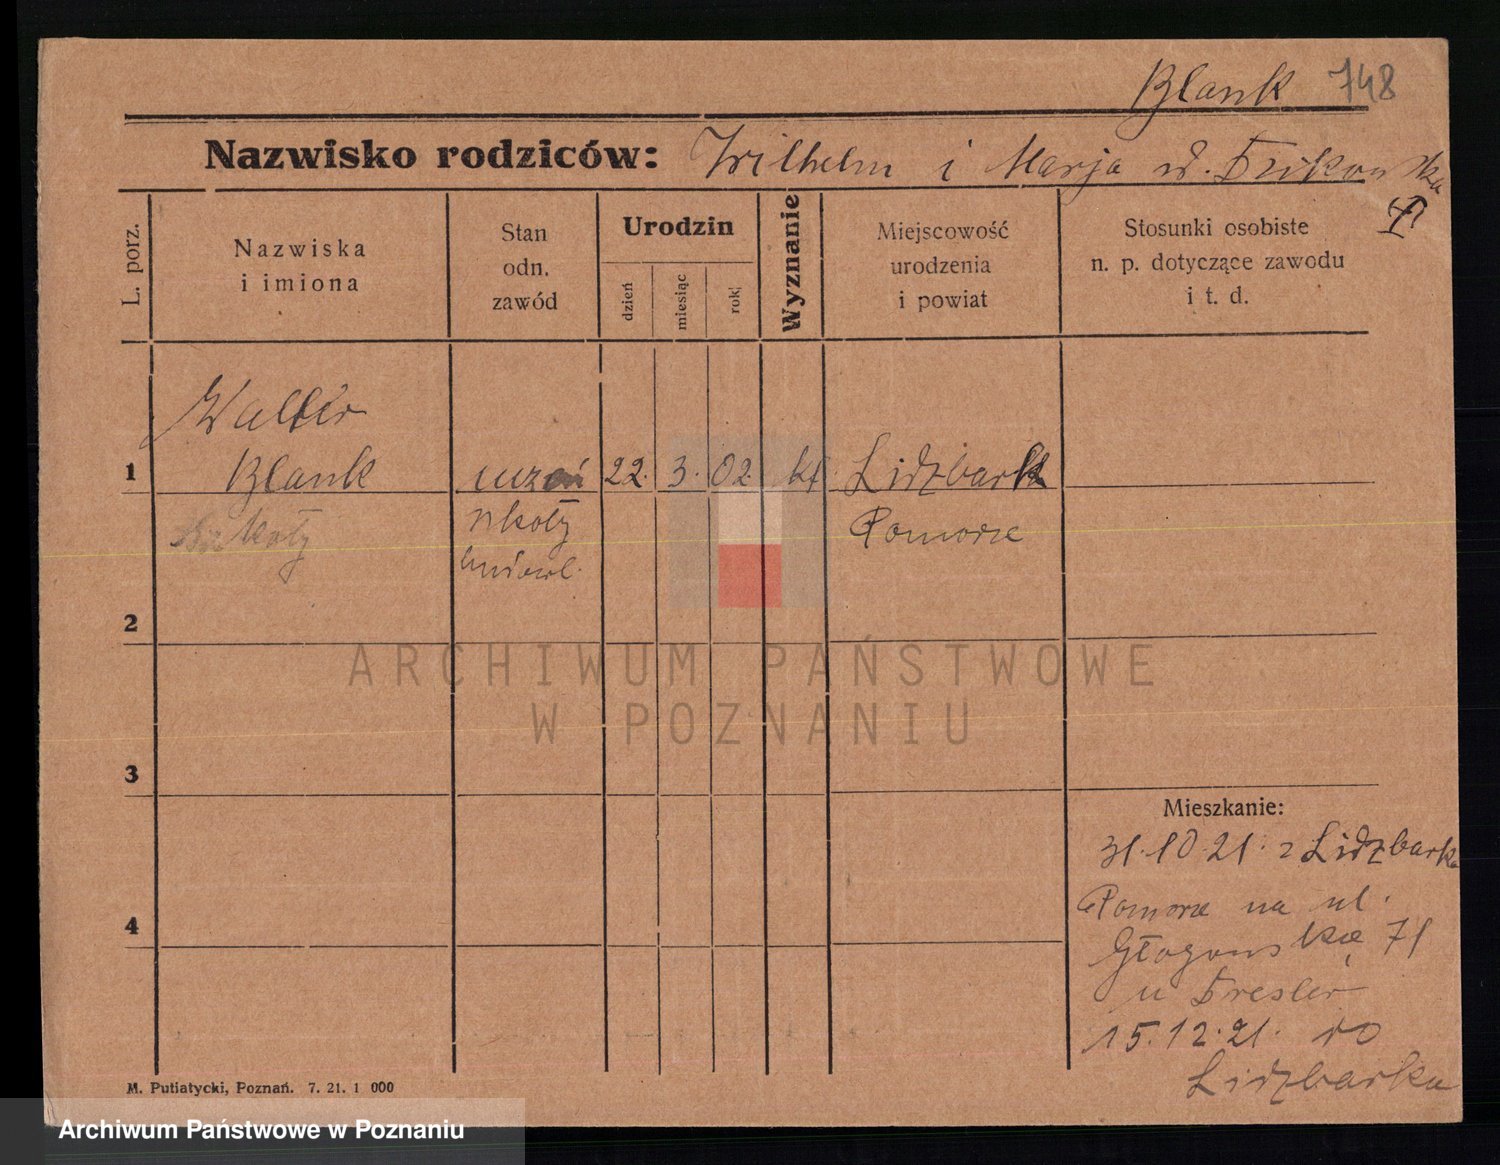 Blank 748
Nazwisko rodziców: Wilhelm i Marja
L. porz.
Nazwiska
i imiona
Stan
odn.
zawód
Urodzin
dzień
miesiąc
rok
Wyznanie
Miejscowość
urodzenia
i powiat
Stosunki osobiste
n. p. dotyczące zawodu
i t. d.
Walter
1 Blank uczeń 22. 3. 02 kt Lidzbark
szkoły szkoły Pomorze
budowl.
2
3
4
ARCHIWUM PAŃSTWOWE
W POZNANIU
Mieszkanie:
31.10.21. z Lidzbarka
Pomorze na ul.
Głogowską 71
u Fresler
15.12.21. do
Lidzbarka
M. Putiatycki, Poznań. 7. 21. 1 000
Archiwum Państwowe w Poznaniu